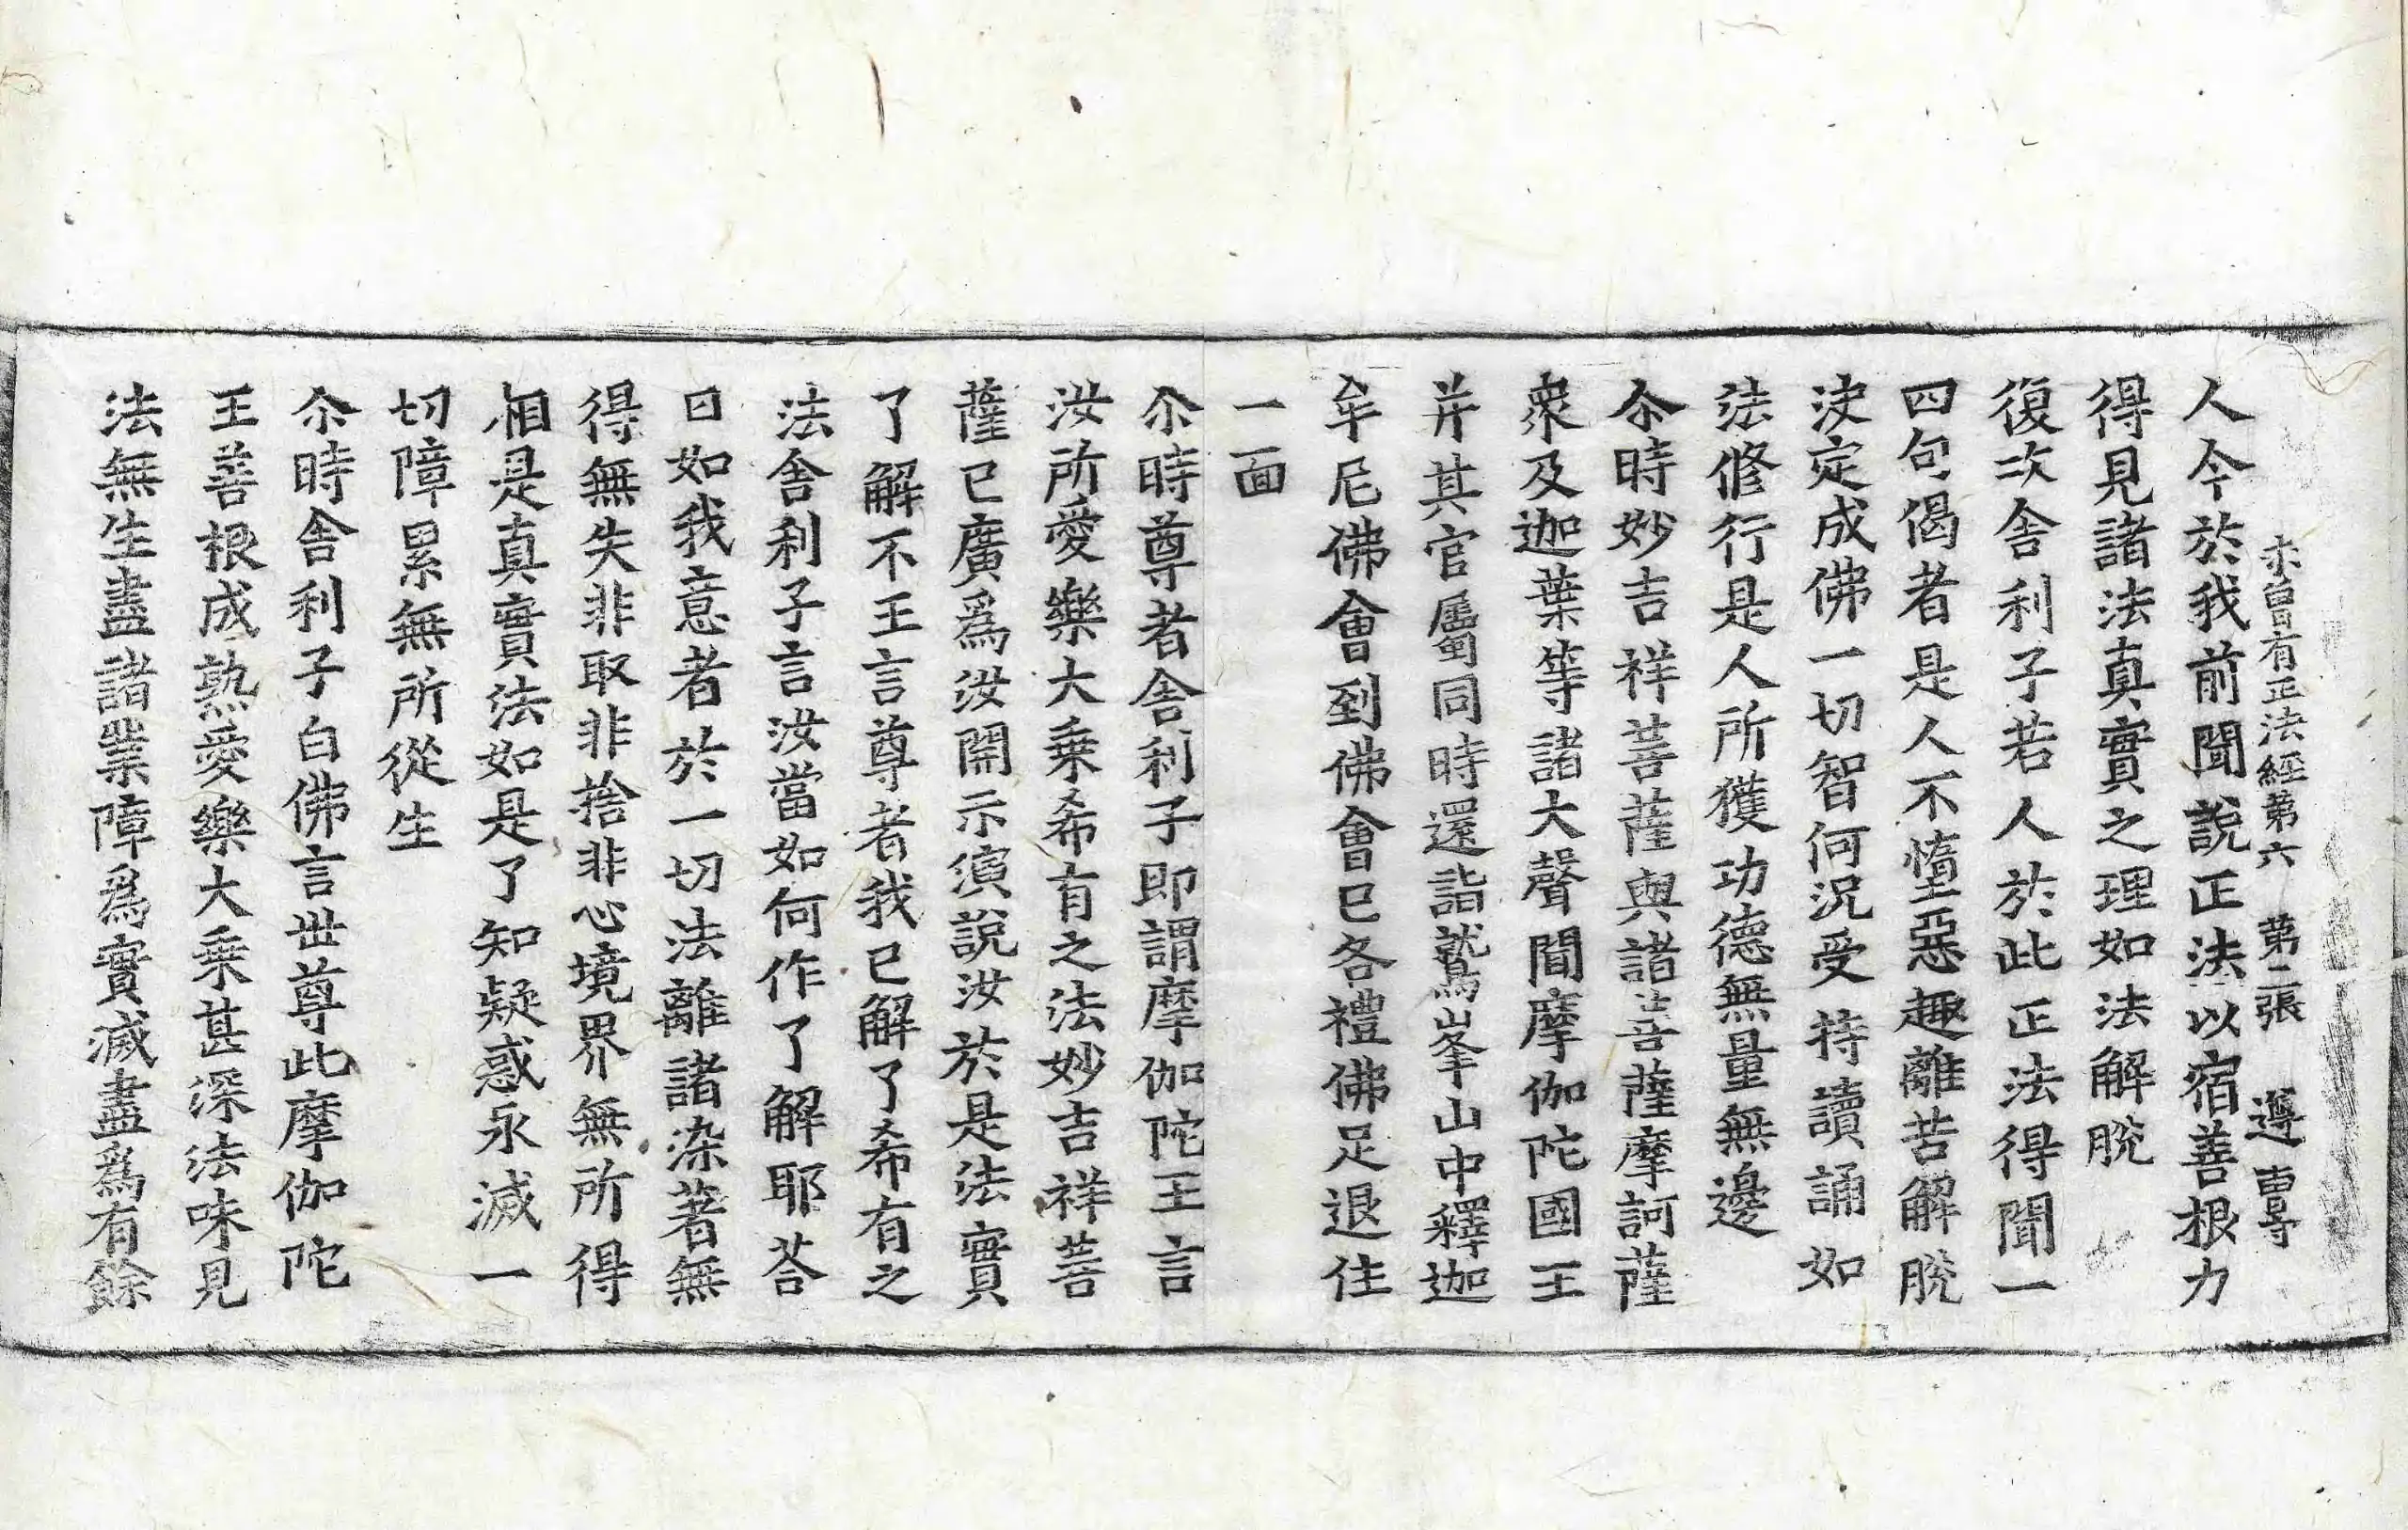 未曾有正法經第六 第二張 遵 專
人今於我前聞說正法以宿善根力
得見諸法真實之理如法解脫
復次舍利子若人於此正法得聞一
四句偈者是人不墮惡趣離苦解脫
決定成佛一切智何況受持讀誦如
法修行是人所獲功德無量無邊
尒時妙吉祥菩薩與諸菩薩摩訶薩
衆及迦葉等諸大聲聞摩伽陀國王
并其官屬同時還詣鷲峯山中釋迦
牟尼佛會到佛會已各禮佛足退住
一面
尒時尊者舍利子即謂摩伽陀王言
汝所愛樂大乘希有之法妙吉祥菩
薩已廣爲汝開示演說汝於是法實
了解不王言尊者我已解了希有之
法舍利子言汝當如何作了解耶荅
曰如我意者於一切法離諸染著無
得無失非取非捨非心境界無所得
相是真實法如是了知疑惑永滅一
切障累無所從生
尒時舍利子白佛言世尊此摩伽陀
王善根成熟愛樂大乘甚深法味見
法無生盡諸業障爲實滅盡爲有餘